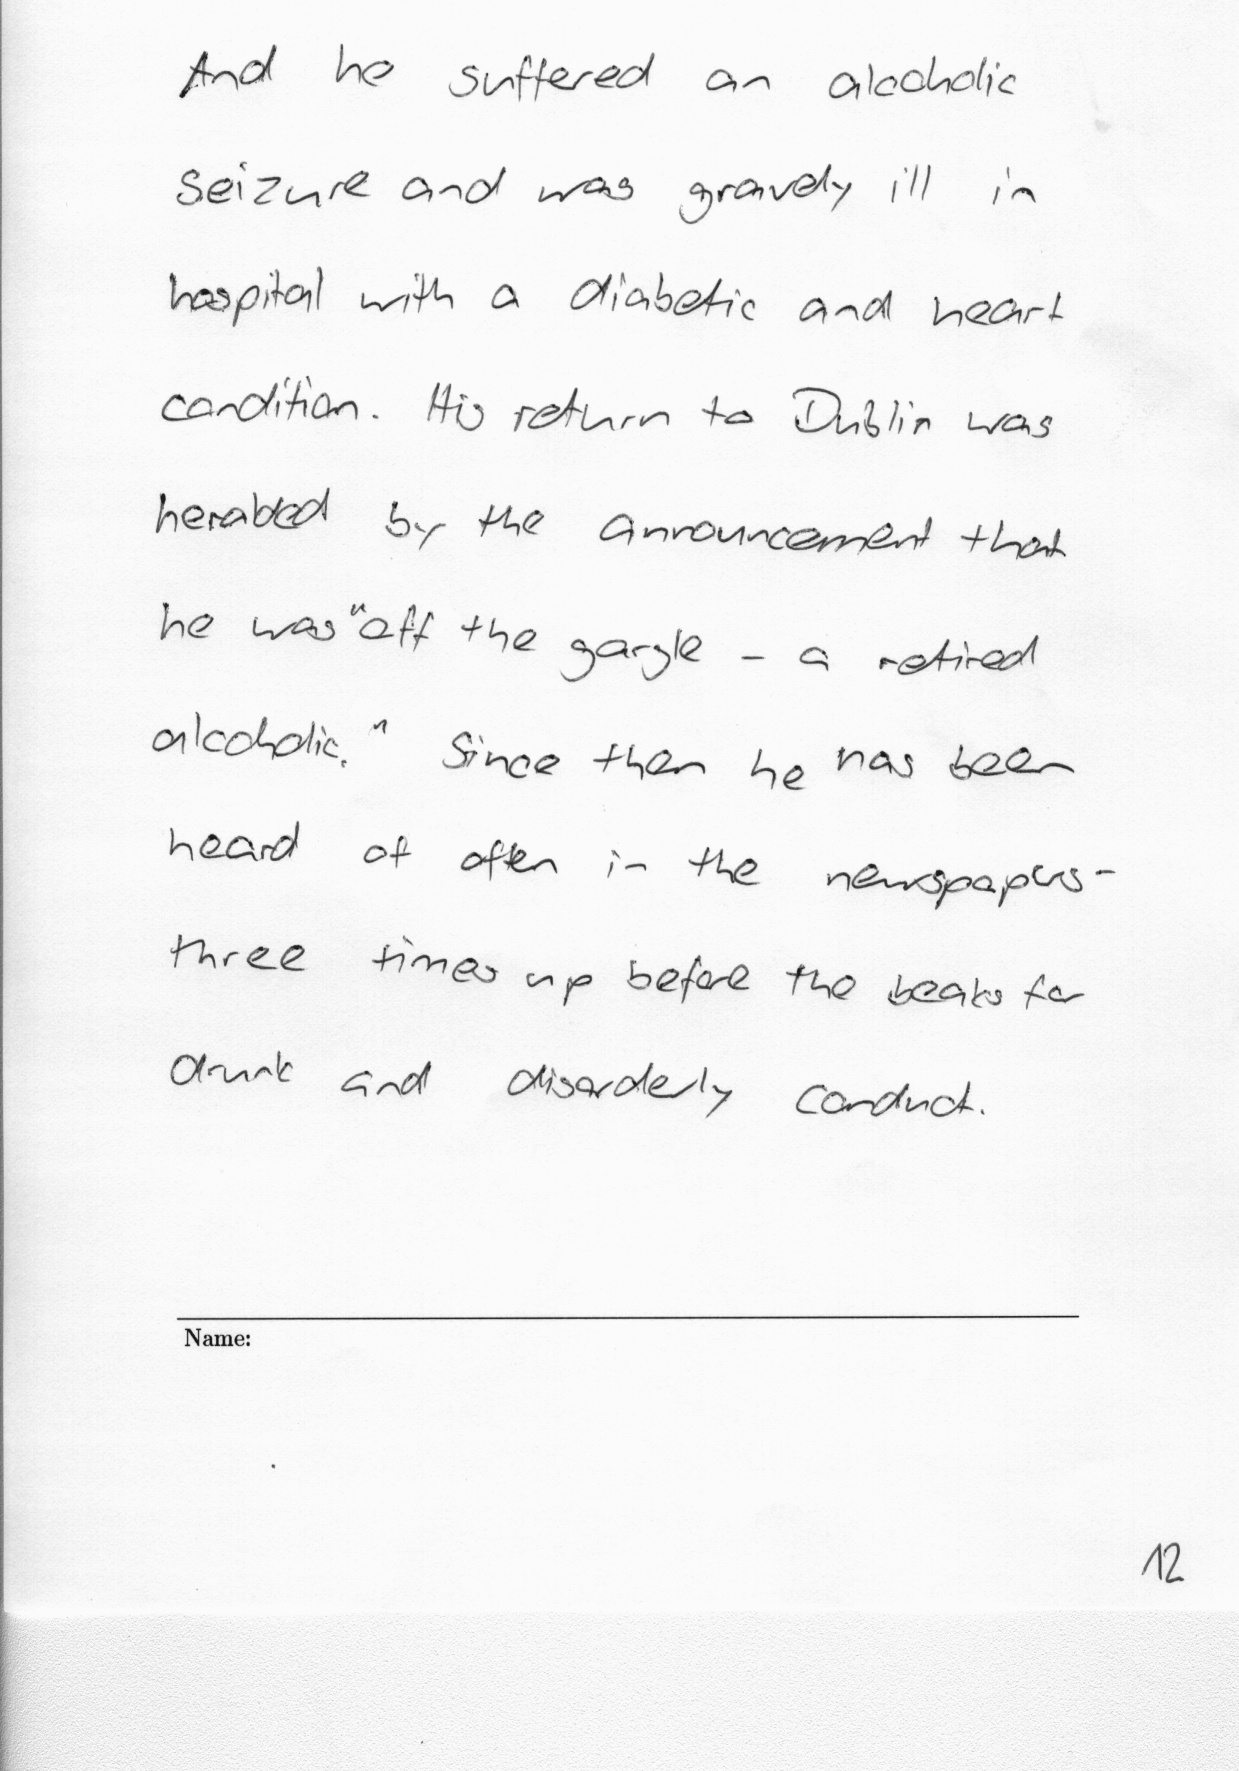 And he suffered an alcoholic
seizure and was gravely ill in
hospital with a diabetic and heart
condition. His return to Dublin was
herabled by the announcement that
he was "off the gargle - a retired
alcoholic." Since then he has been
heard of often in the newspapers-
three times up before the beaks for
drunk and disorderly conduct.
Name:
12